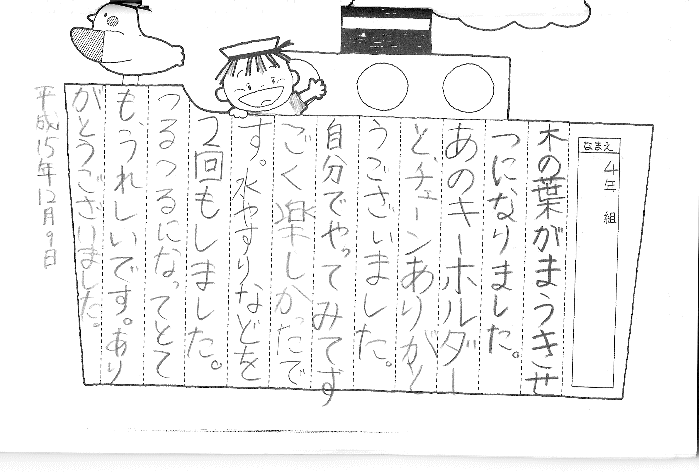 なまえ
4年 組
木の葉がまうきせ
つになりました。
あのキーホルダー
と、チェーンありがと
うございました。
自分でやってみてす
ごく楽しかったで
す。水やすりなどを
2回もしました。
つるつるになってとて
も、うれしいです。あり
がとうございました。
平成15年12月9日